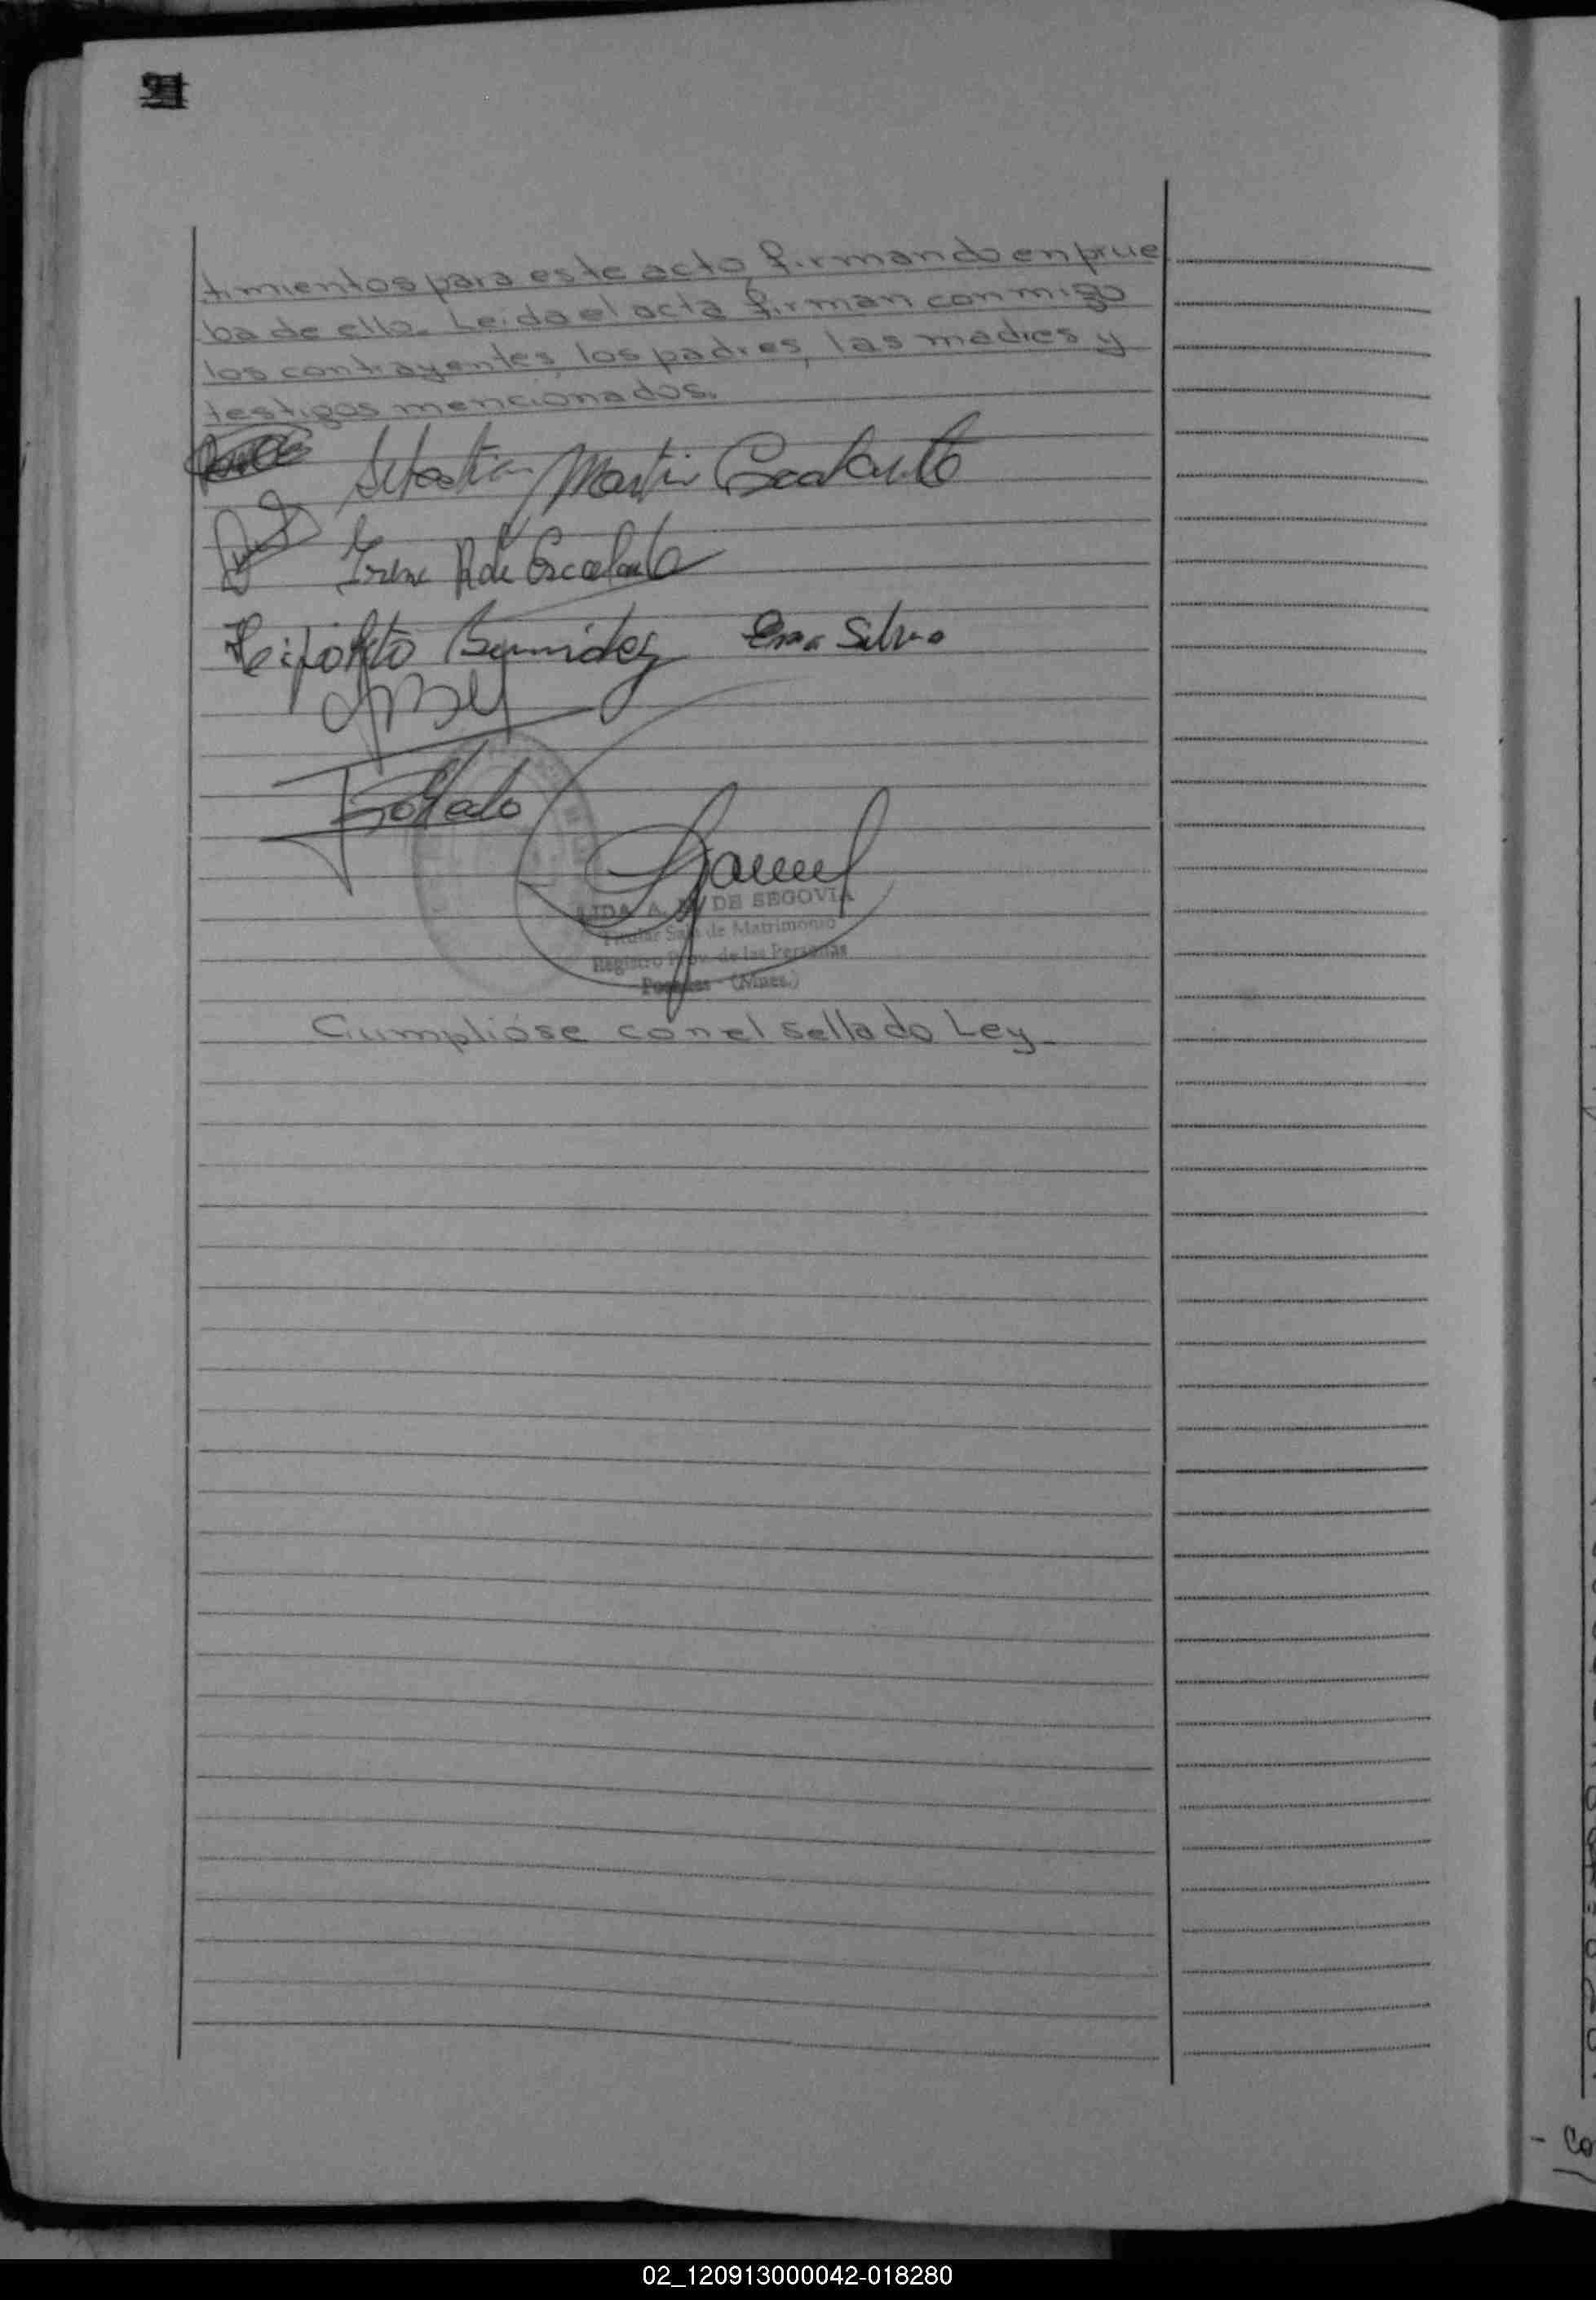 timientos para este acto, firmando en prue
ba de ello. Leida el acta, firman conmigo
los contrayentes, los padres, las madres y
testigos mencionados.
Sebastian Martin Escalante
Irene R de Escalante
Bermidez Ema Silva
A. DE SEGOVIA
Titular Sala de Matrimonio
Registro Prov. de las Personas
Posadas - (Mnes.)
Cumplióse con el sellado Ley
02_120913000042-018280